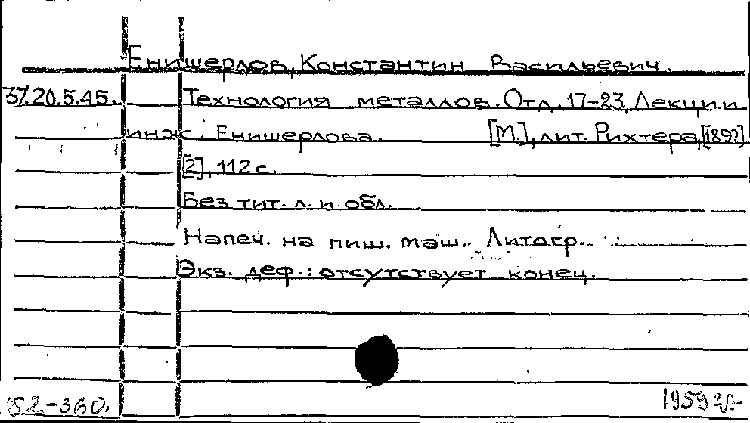 Енишерлов, Константин Васильевич.
37.20.5.45. Технология металлов. Отд. 17-23. Лекции
инж. Енишерлова. [М.], лит. Рихтера, [189?]
[2], 112 с.
Без тит. л. и обл.
Напеч. на пиш. маш. Литогр.
Экз. деф.: отсутствует конец.
52-360. 1959